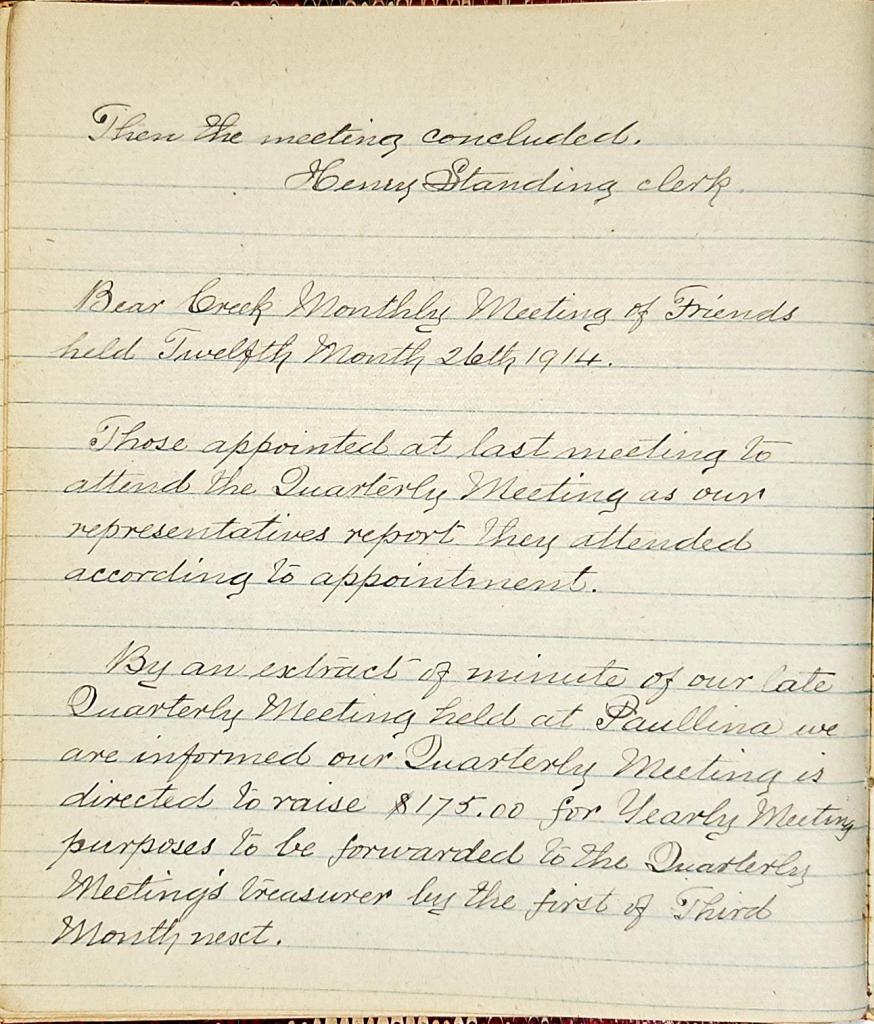 Then the meeting concluded.
Henry Standing clerk.
Bear Creek Monthly Meeting of Friends
held Twelfth Month 26th 1914.
Those appointed at last meeting to
attend the Quarterly Meeting as our
representatives report they attended
according to appointment.
By an extract of minute of our late
Quarterly Meeting held at Paullina we
are informed our Quarterly Meeting is
directed to raise $175.00 for Yearly Meeting
purposes to be forwarded to the Quarterly
Meeting's treasurer by the first of Third
Month next.